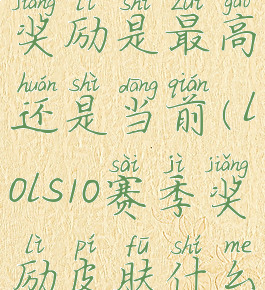 jiǎng lì shì zuì gāo
奖励是最高
huán shì dāng qián
还是当前(l
sài jì jiǎng
olslo赛季奖
lì pí fū shí me
励皮肤什么